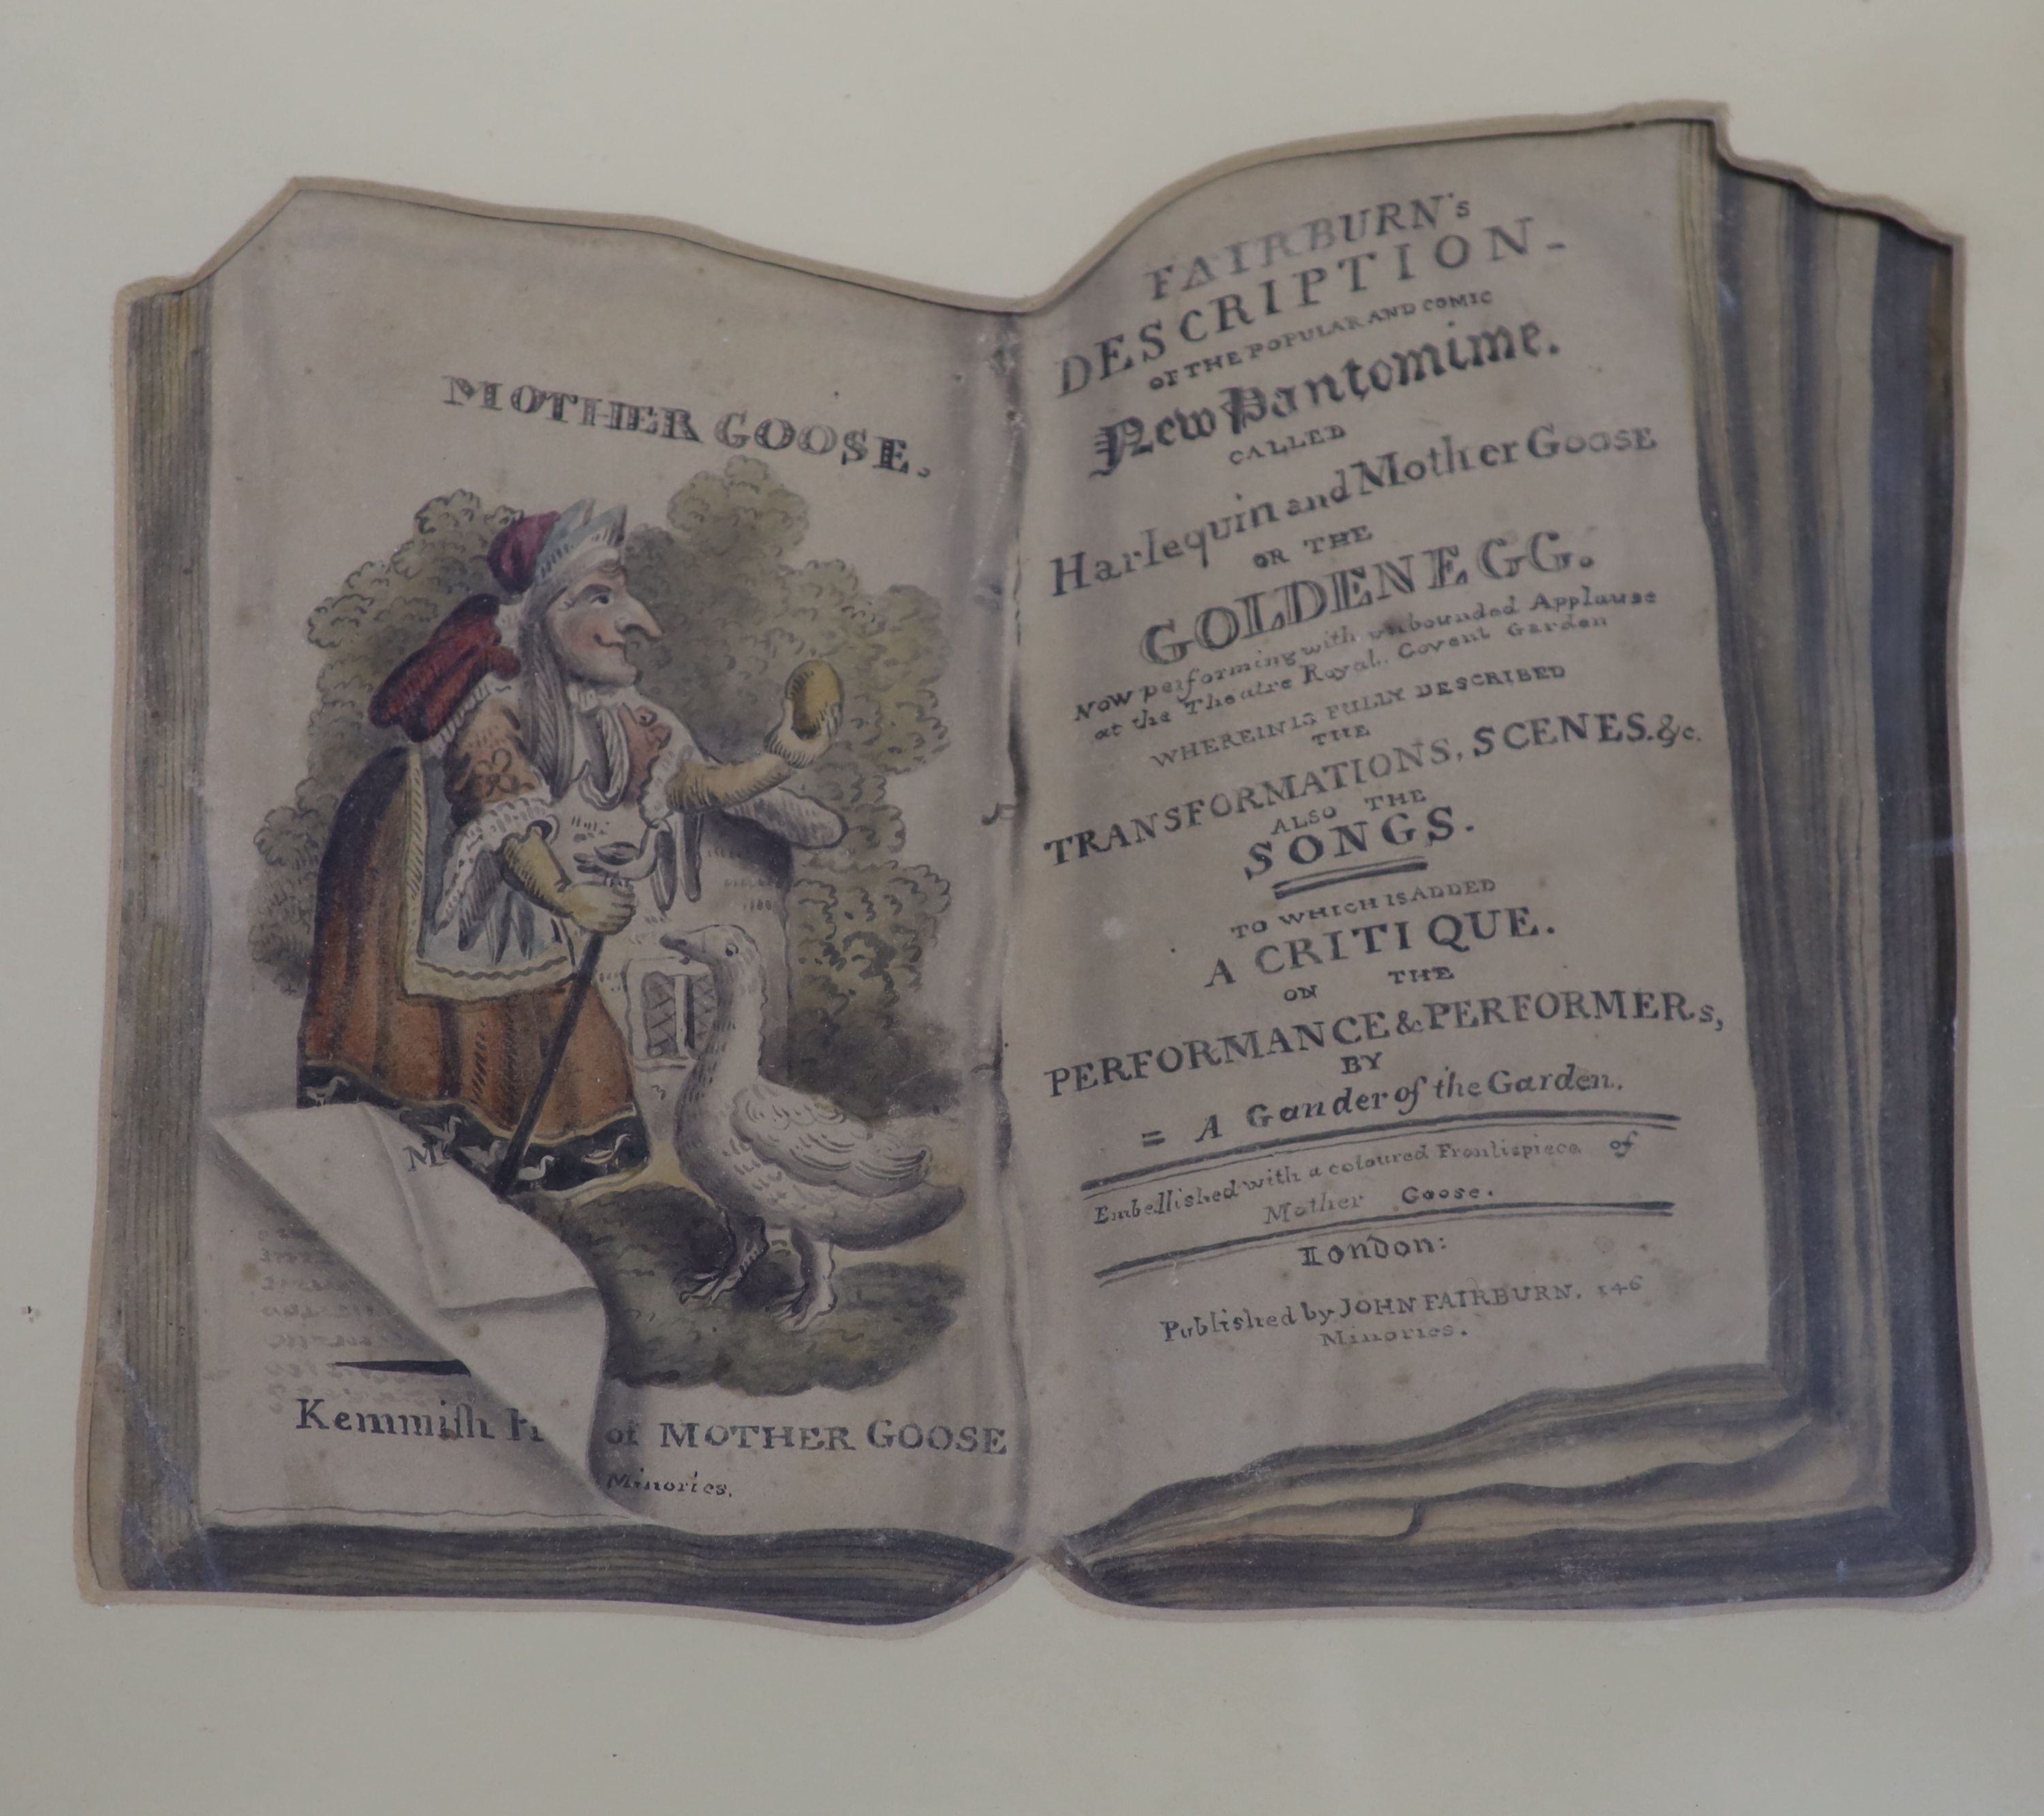 MOTHER GOOSE.
M
Kemmiſh of MOTHER GOOSE
Minories.
FAIRBURN's
DESCRIPTION-
OF THE POPULAR AND COMIC
New Pantomime.
CALLED
Harlequin and Mother Goose
OR THE
GOLDEN EGG.
Now performing with unbounded Applause
at the Theatre Royal, Covent Garden
WHEREIN IS FULLY DESCRIBED
THE
TRANSFORMATIONS, SCENES. &c.
ALSO THE
SONGS.
TO WHICH IS ADDED
A CRITIQUE.
ON THE
PERFORMANCE & PERFORMERs,
BY
= A Gander of the Garden.
Embellished with a coloured Frontispiece of
Mother Goose.
London:
Published by JOHN FAIRBURN, 146
Minories.